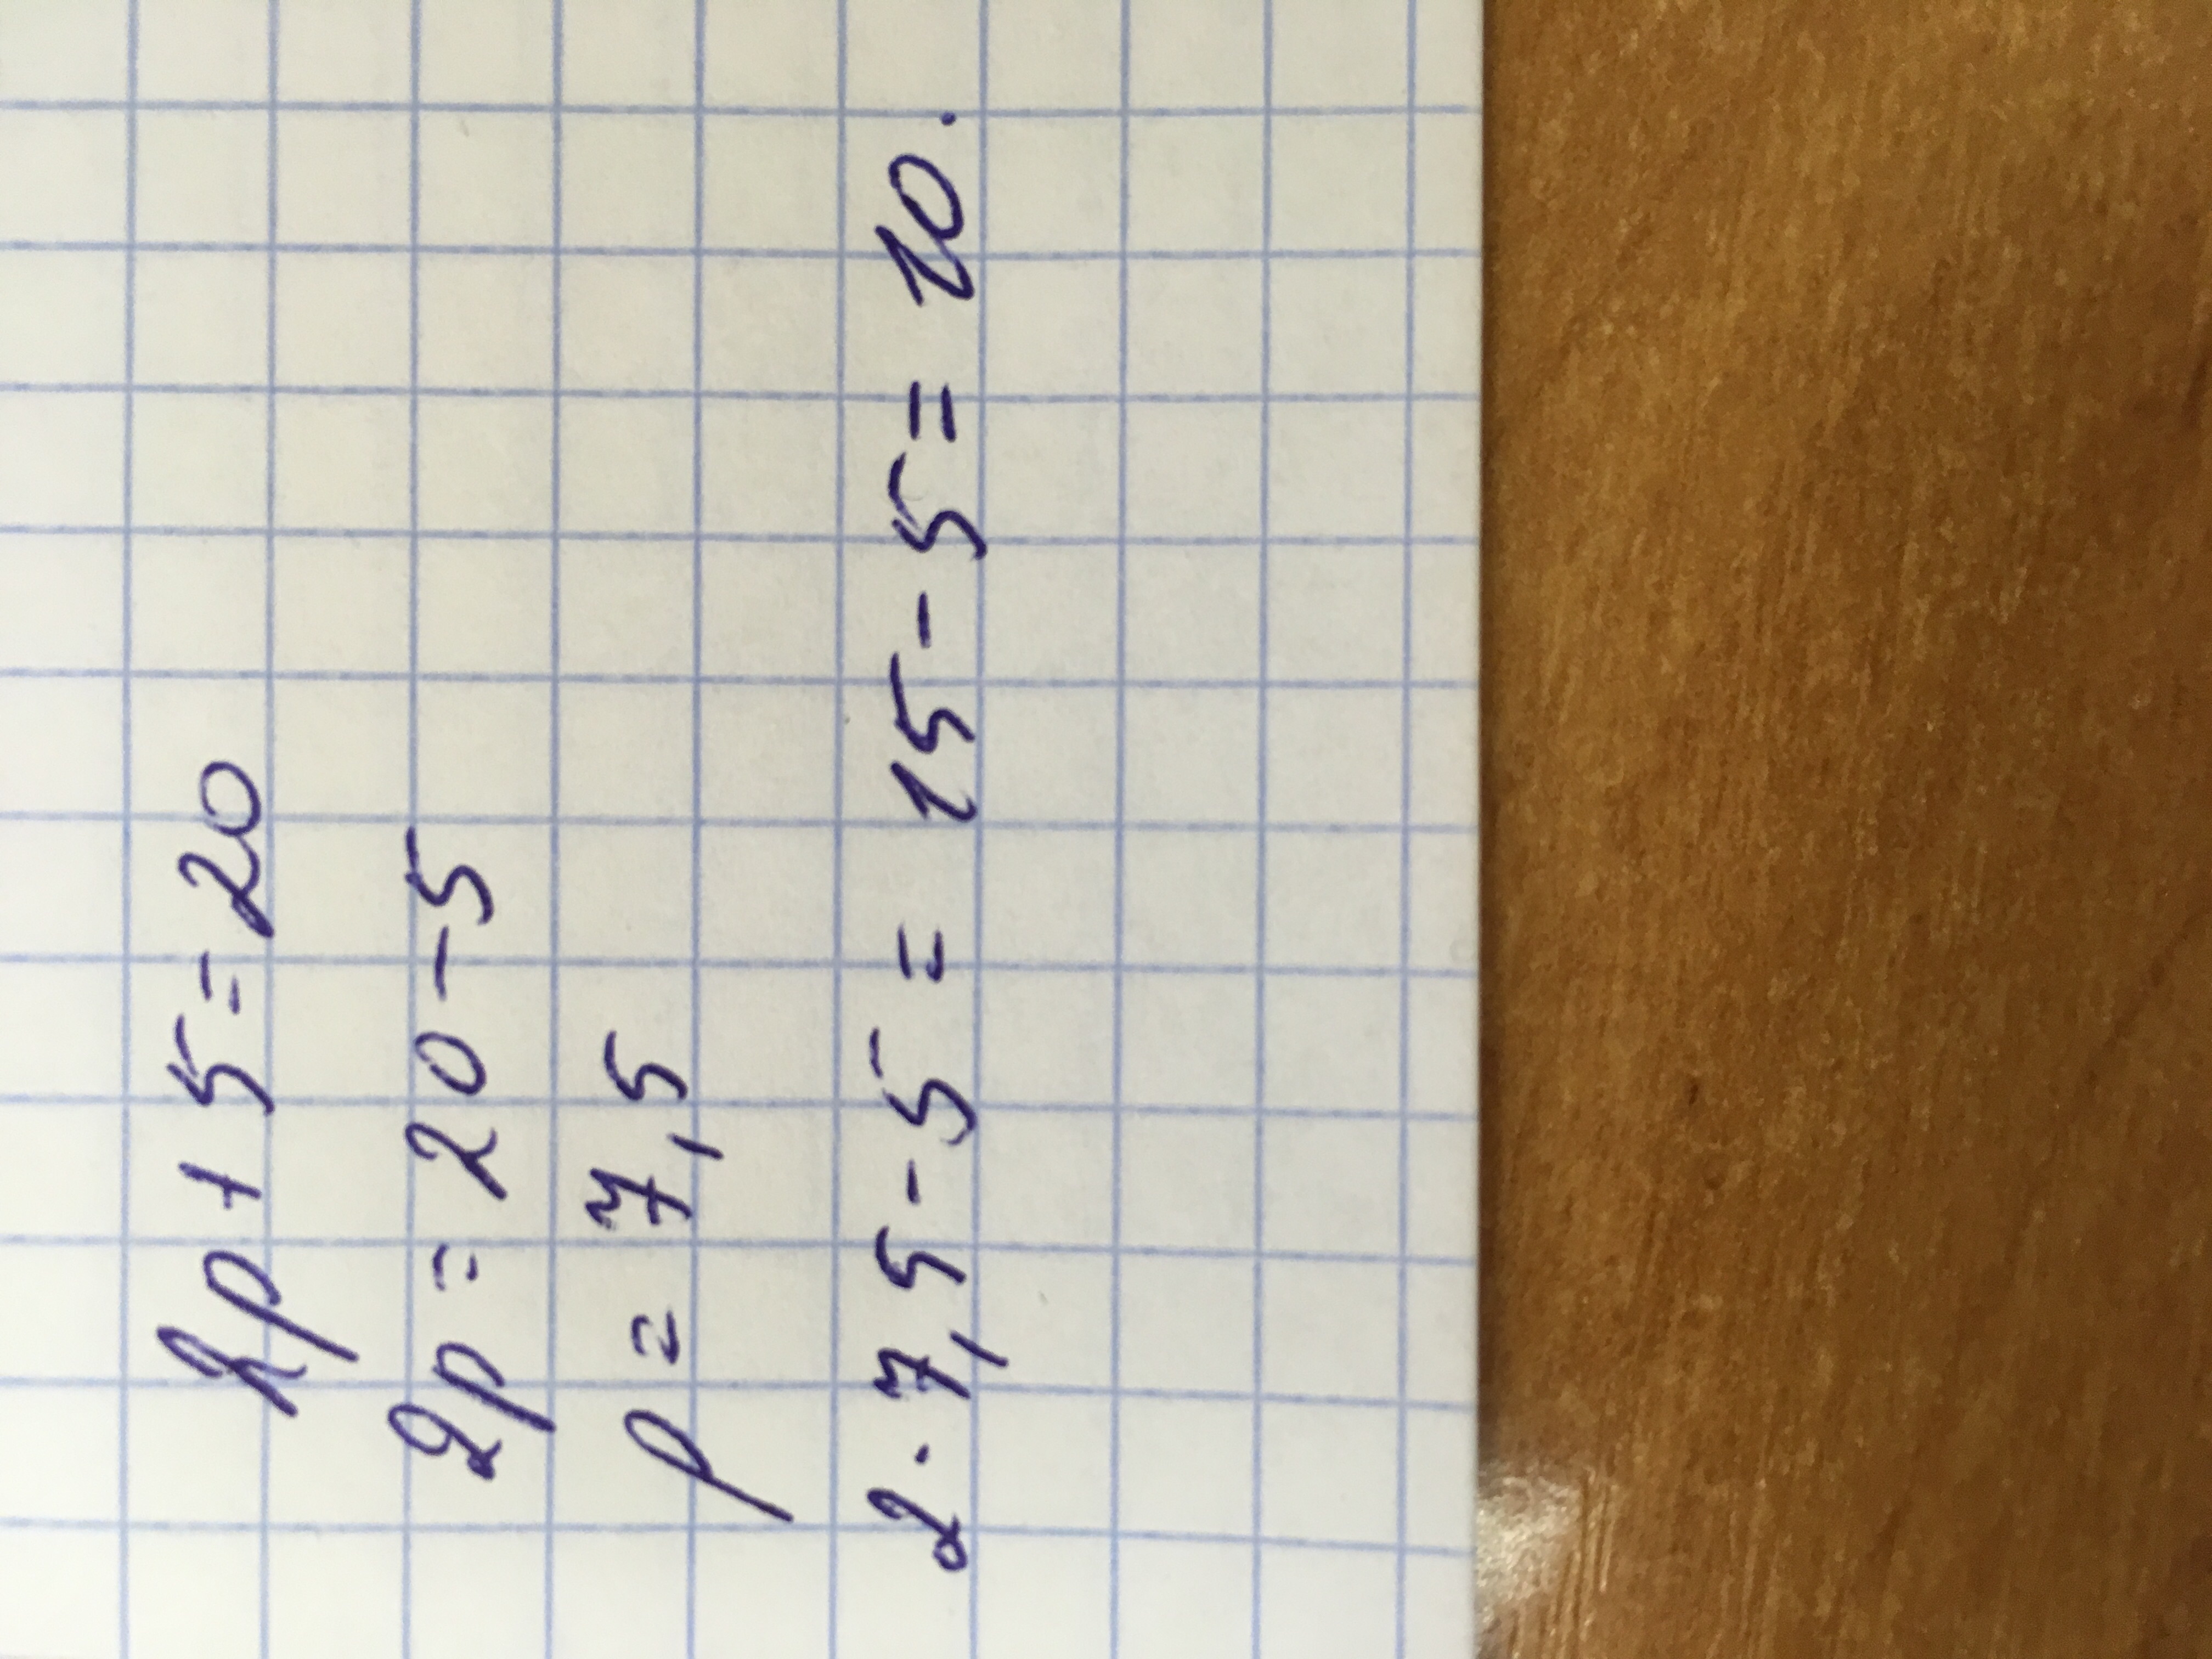 2p + 5 = 20
2p = 20 - 5
p = 7,5
2 · 7,5 - 5 = 15 - 5 = 10.